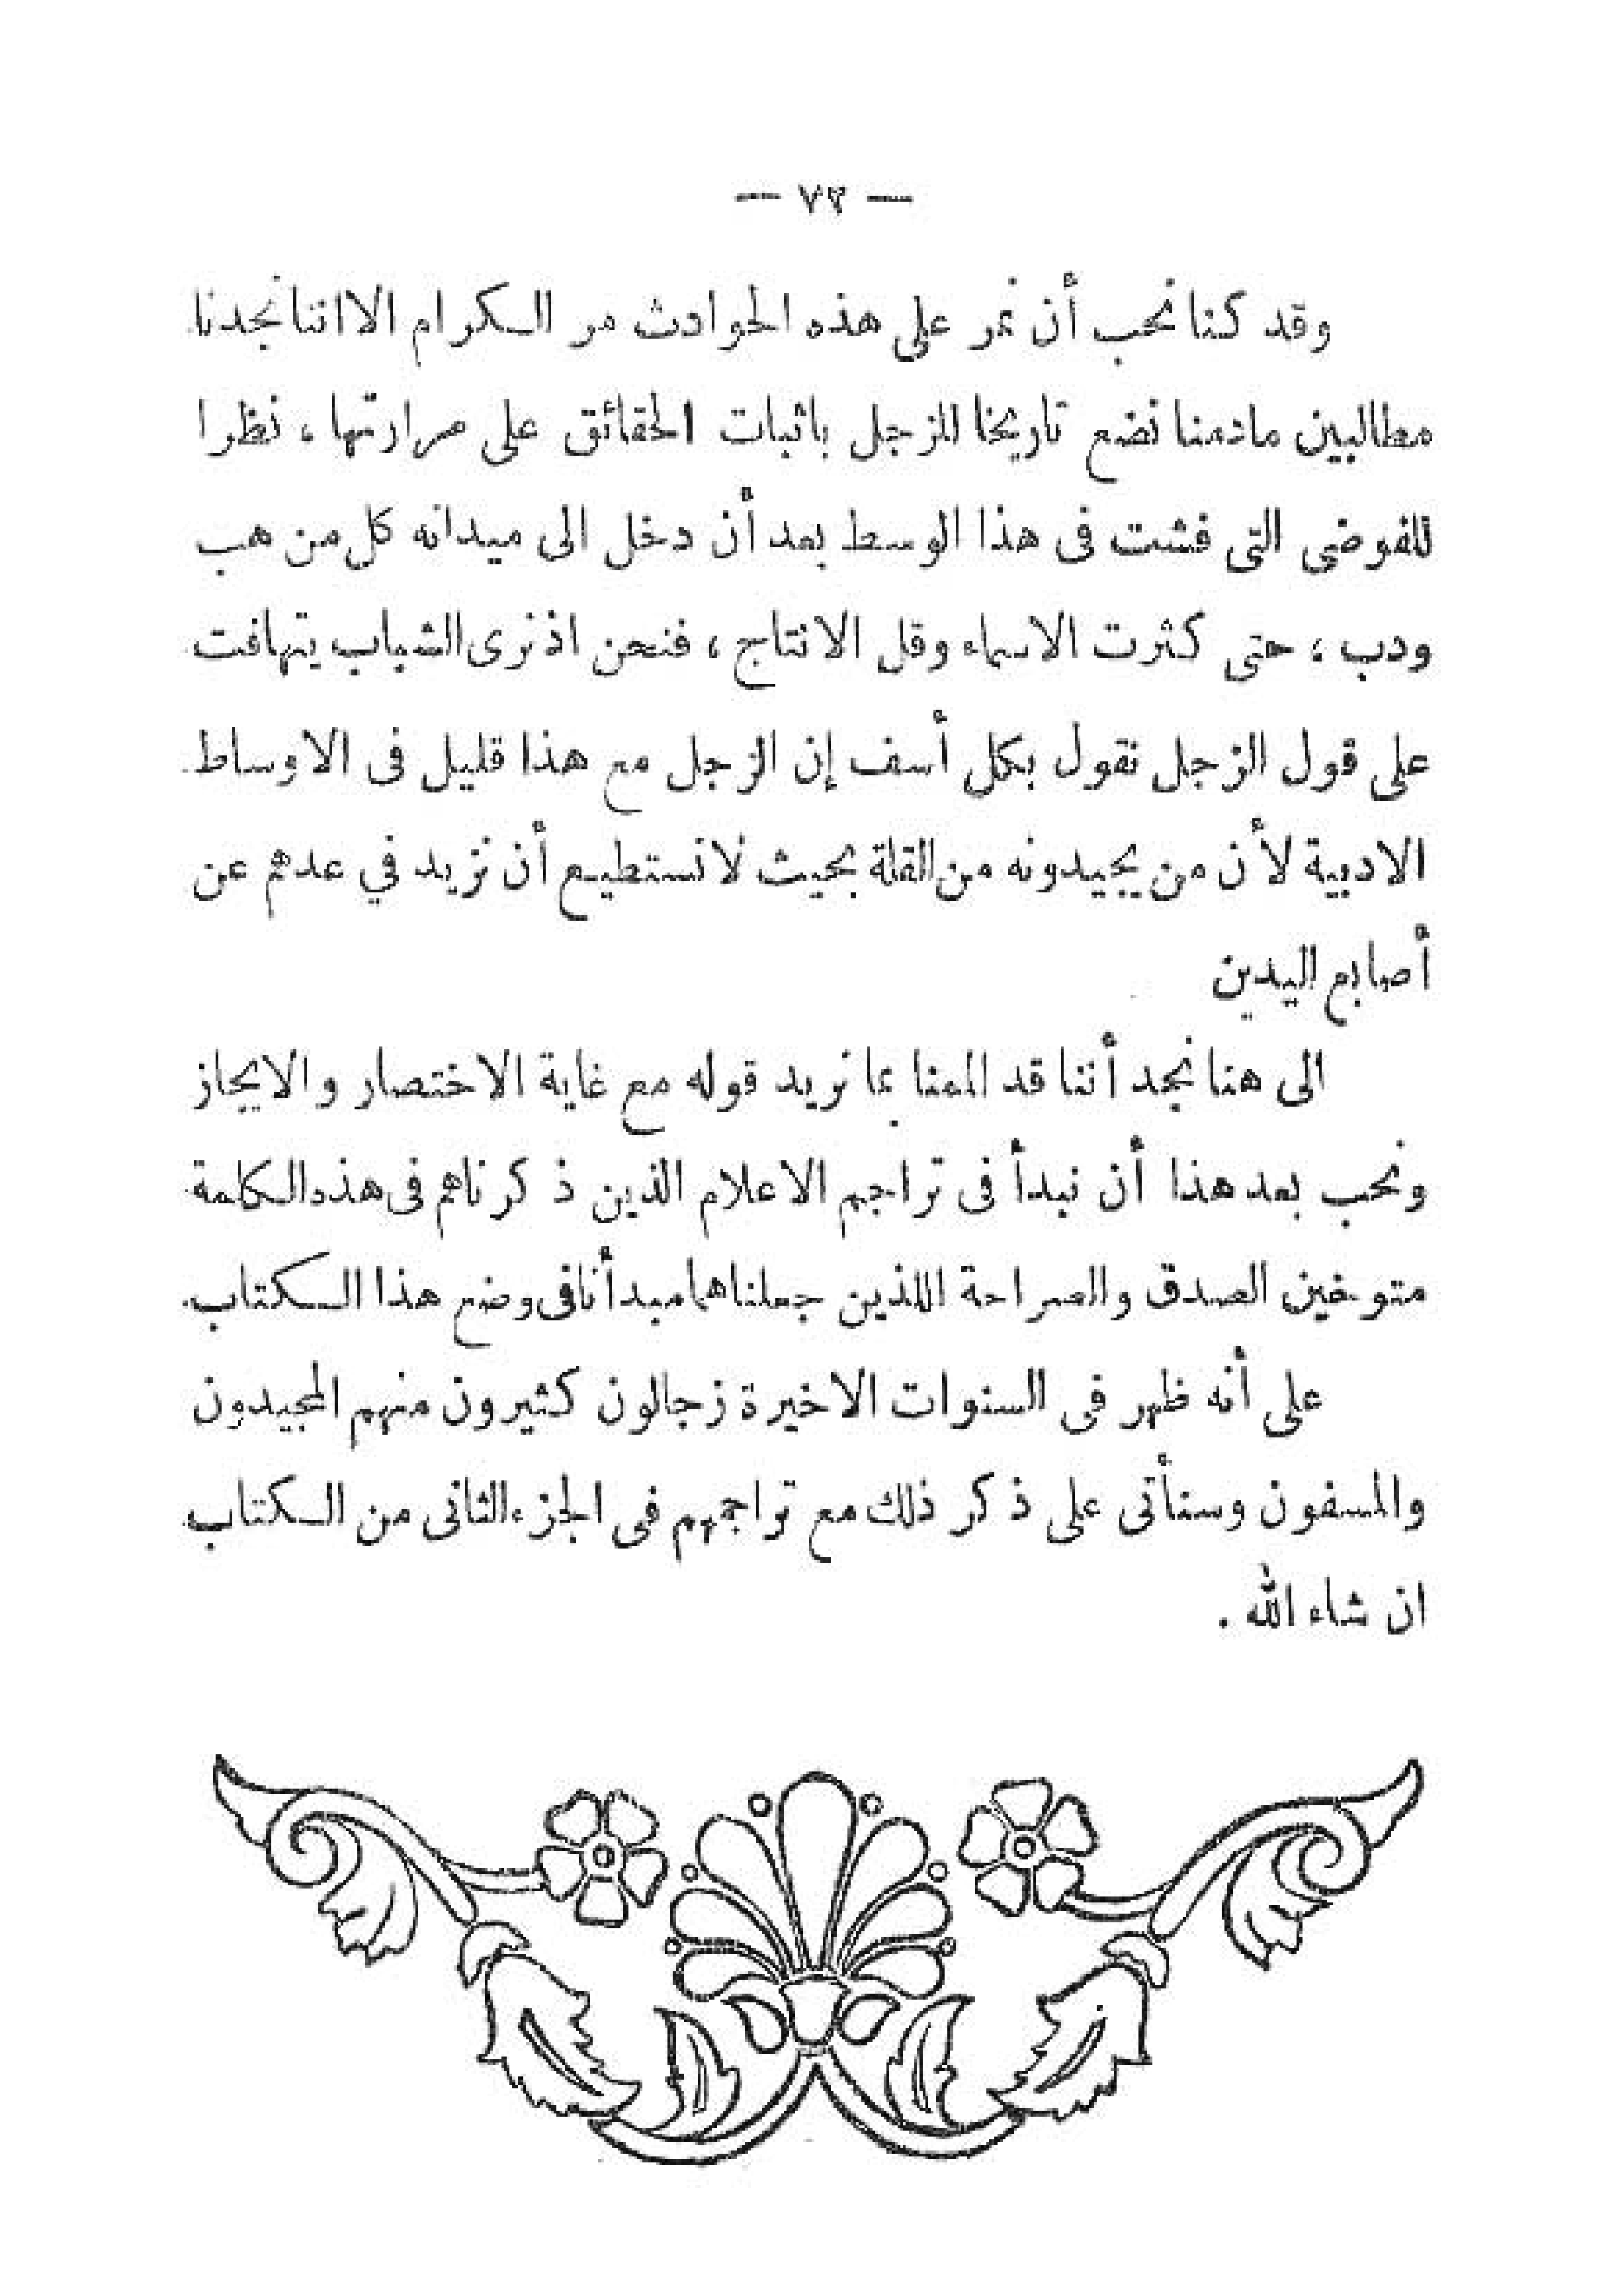 — ٧٢ —
وقد كنا نحب أن نمر على هذه الحوادث مر الكرام الا اننا نجدنا
مطالبين مادمنا نضع تاريخا للزجل باثبات الحقائق على مرارتها ، نظرا
للفوضى التى فشت فى هذا الوسط بعد أن دخل الى ميدانه كل من هب
ودب ، حتى كثرت الاسماء وقل الانتاج ، فنحن اذ نرى الشباب يتهافت
على قول الزجل نقول بكل أسف إن الزجل مع هذا قليل فى الاوساط
الادبية لأن من يجيدونه من القلة بحيث لا نستطيع أن نزيد في عدهم عن
أصابع اليدين
الى هنا نجد أننا قد المنا بما نريد قوله مع غاية الاختصار والايجاز
ونحب بعد هذا أن نبدأ فى تراجم الاعلام الذين ذكرناهم فى هذه الكلمة
متوخين الصدق والصراحة اللذين جعلناهما مبدأنا فى وضع هذا الكتاب.
على أنه ظهر فى السنوات الاخيرة زجالون كثيرون منهم المجيدون
والمسفون وسنأتى على ذكر ذلك مع تراجمهم فى الجزء الثانى من الكتاب
ان شاء الله .